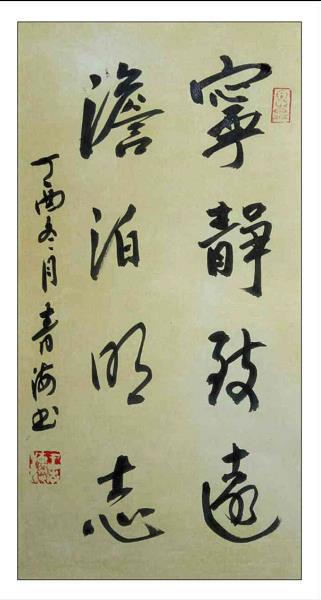 寧靜致遠
澹泊明志
丁酉冬月青海书